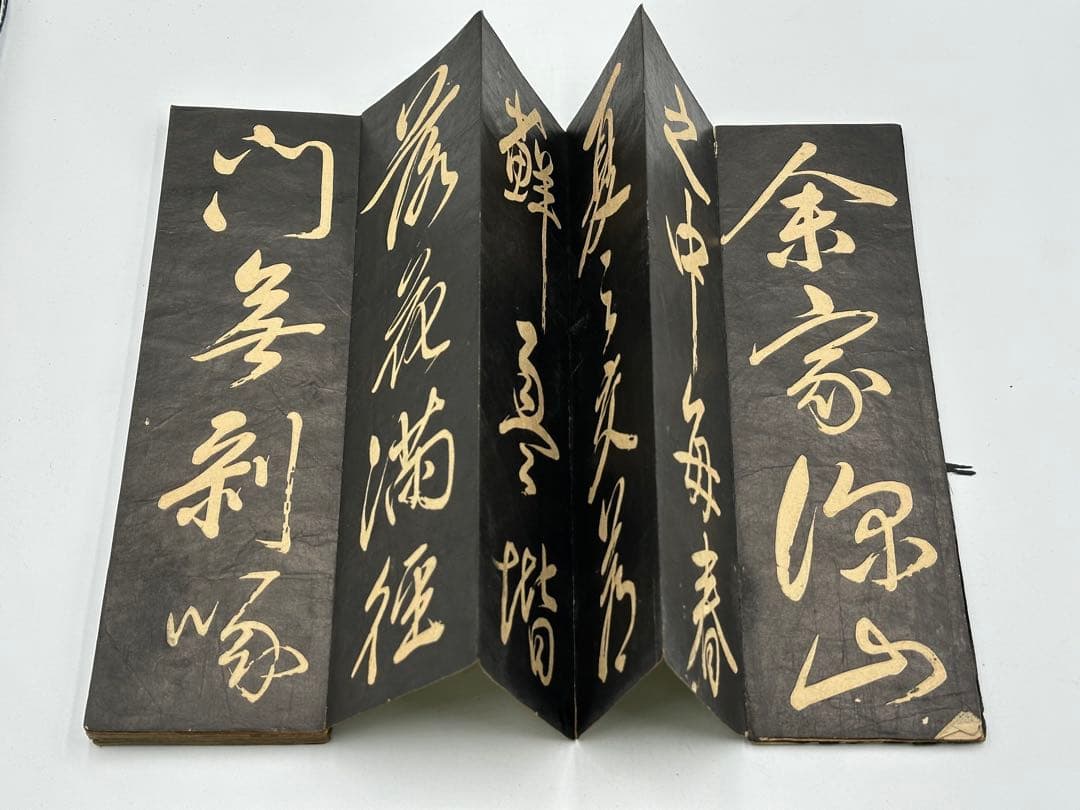 余家深山
之中每春
夏之交蒼
蘚盈堦
落花滿徑
門無剝啄